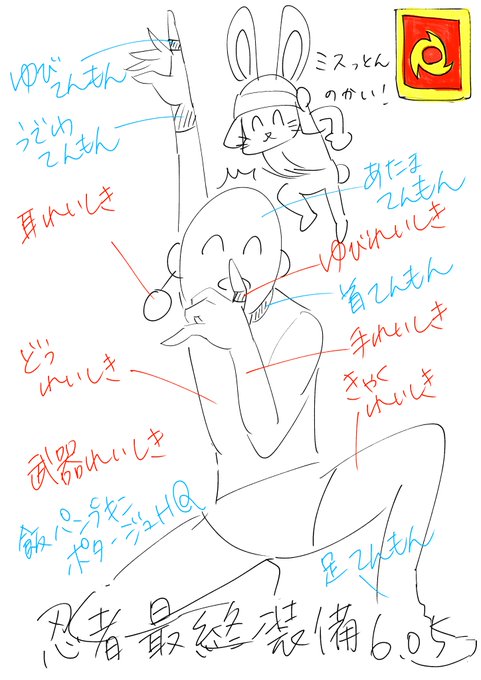 ゆび
てんもん
うでわ
てんもん
ミスっとん
のかい!
あたま
てんもん
耳れいしき
ゆびれいしき
首てんもん
手れいしき
どう
れいしき
きゃく
れいしき
武器れいしき
飯 パンプキン
ポタージュHQ
足てんもん
忍者最終装備6.05